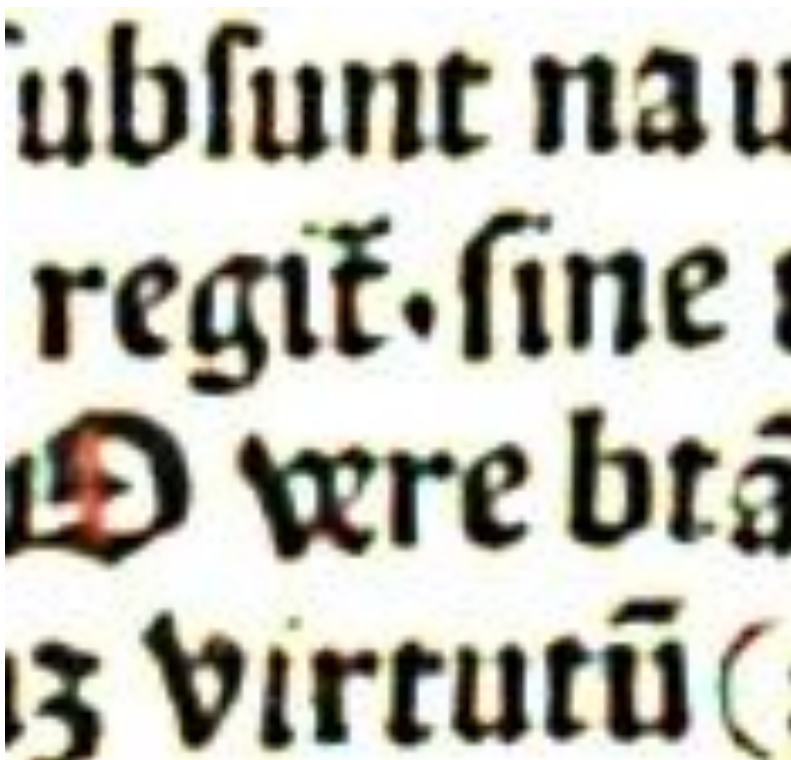 ſubſunt nau
regit̃·ſine
O vere btā
virtutū (